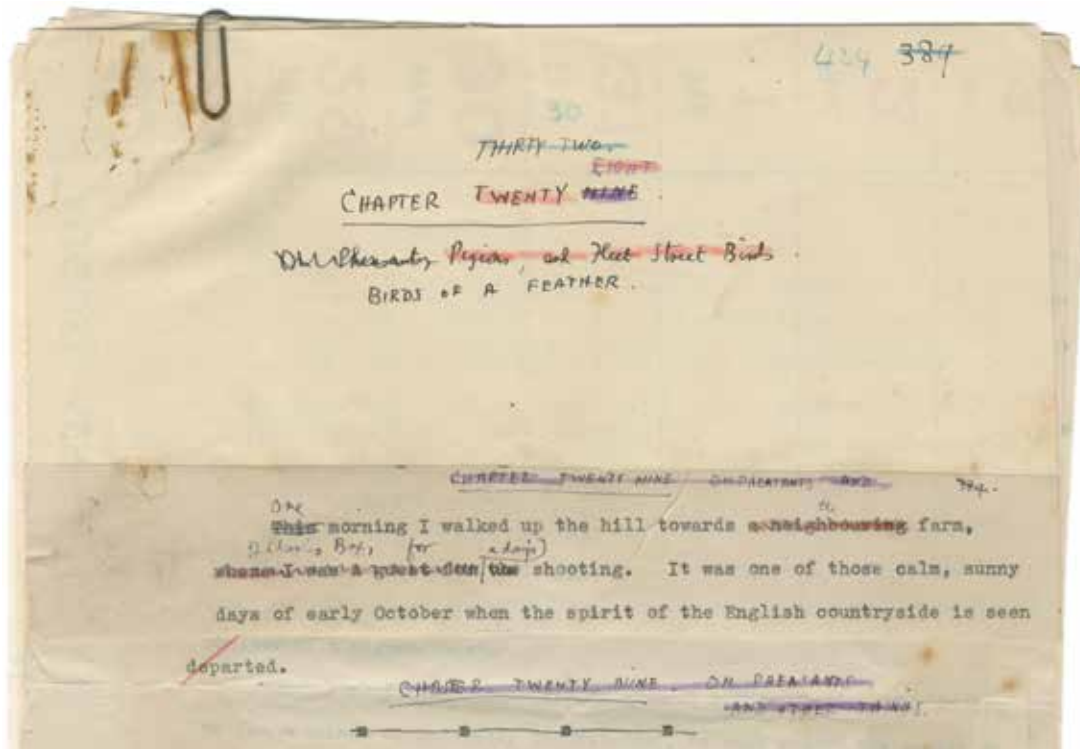 434 384
30
THIRTY TWO
EIGHT
CHAPTER TWENTY NINE.
Pigeons, and Fleet Street Birds.
BIRDS OF A FEATHER.
CHAPTER TWENTY NINE ON PHEASANTS AND
One the
This morning I walked up the hill towards a neighbouring farm,
for a day's
where I was a guest for the shooting. It was one of those calm, sunny
days of early October when the spirit of the English countryside is seen
departed.
CHAPTER TWENTY NINE. ON PHEASANTS
AND OTHER THINGS.